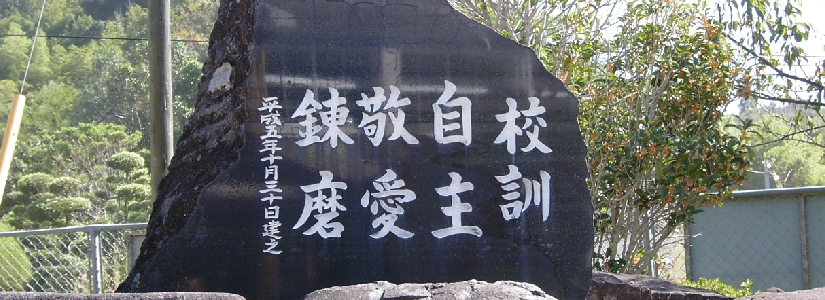 校訓
自主
敬愛
錬磨
平成五年十月三十日建之